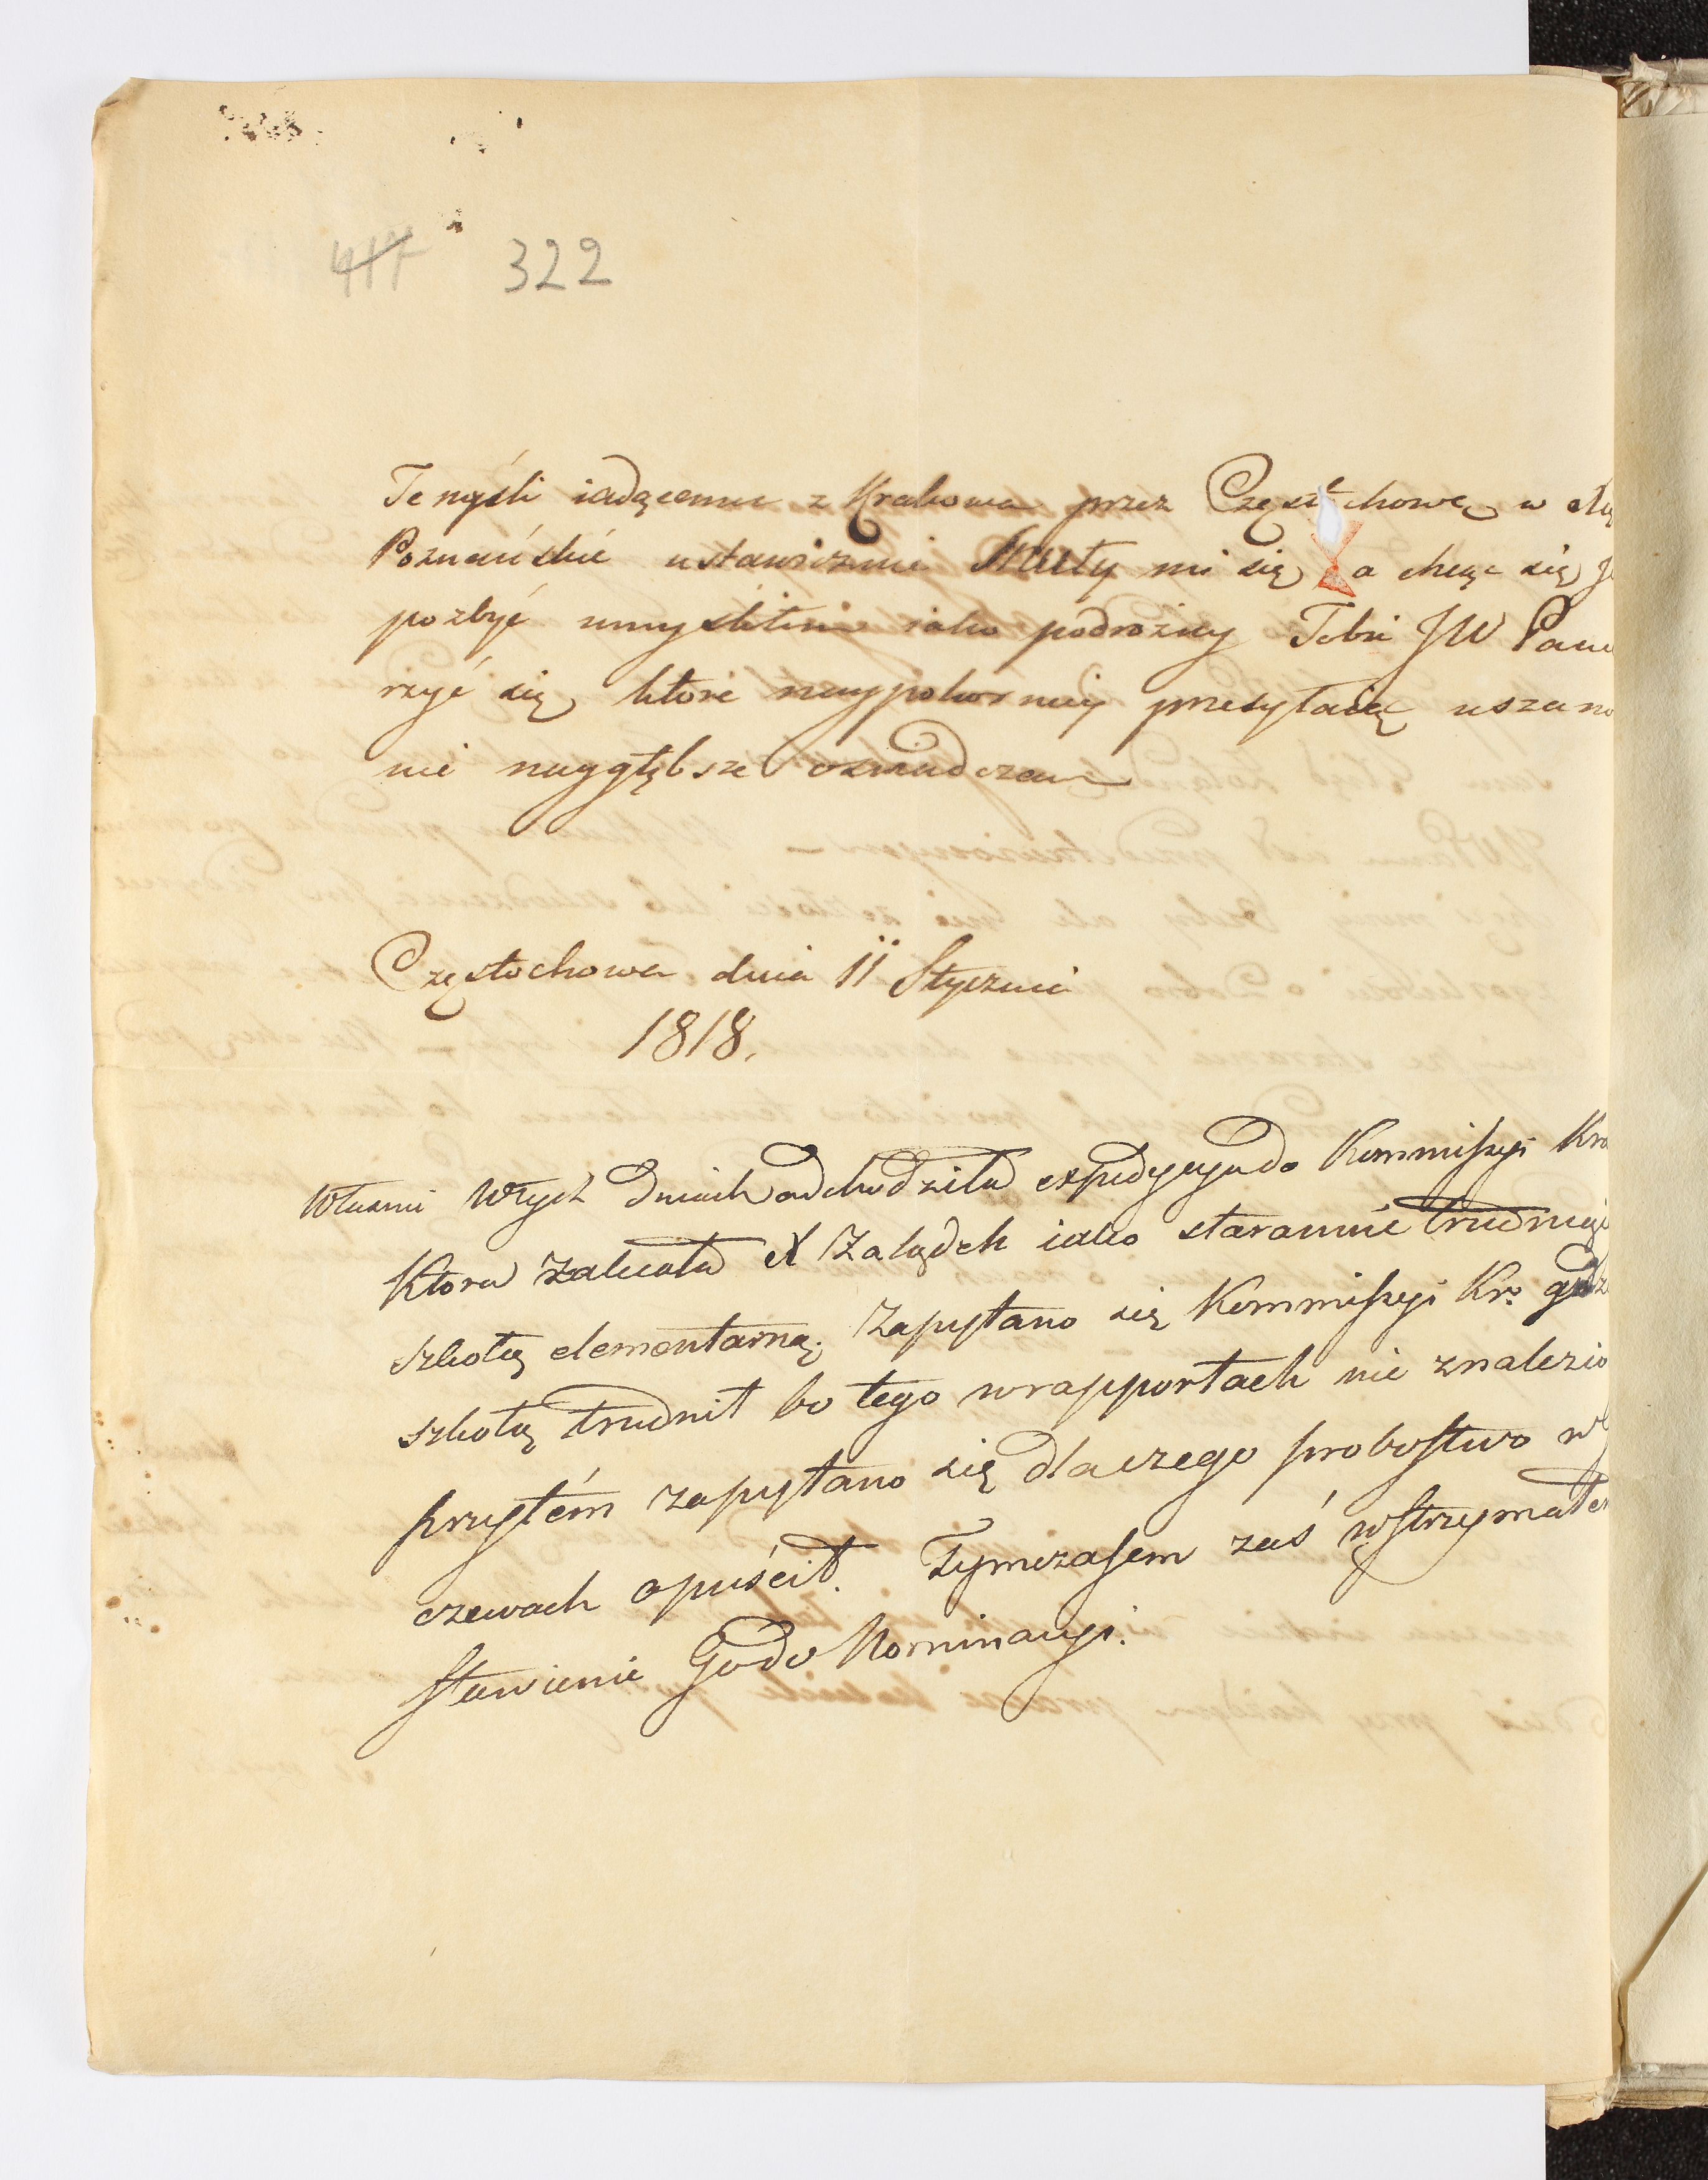 417 322
Te myśli iadącemu z Krakowa przez Częst chowę w
Poznańskie ustawicznie snuły mi się a chcąc się
pozbyć umyśliłem iako podrożny Tobie JW Panu
rzyć się które naypokorniey przesyłaiąc uszano
nie naygłębsze oświadczam
Częstochowa dnia 11 Stycznia
1818.
Właśnie w tych dniach odchodziła expedycya do Kommissyi Kra
Ktora zalecała X Zalązek iako starannie trudniące
szkołą elementarną. Zapytano się Kommissyi Kr. gdzie
szkołą trudnił bo tego w rapportach nie znalezio
przytém zapytano się dlaczego probostwo w
czewach opuścił. Tymczasem zaś wstrzymałem
stawienie Go do Nominacyi.